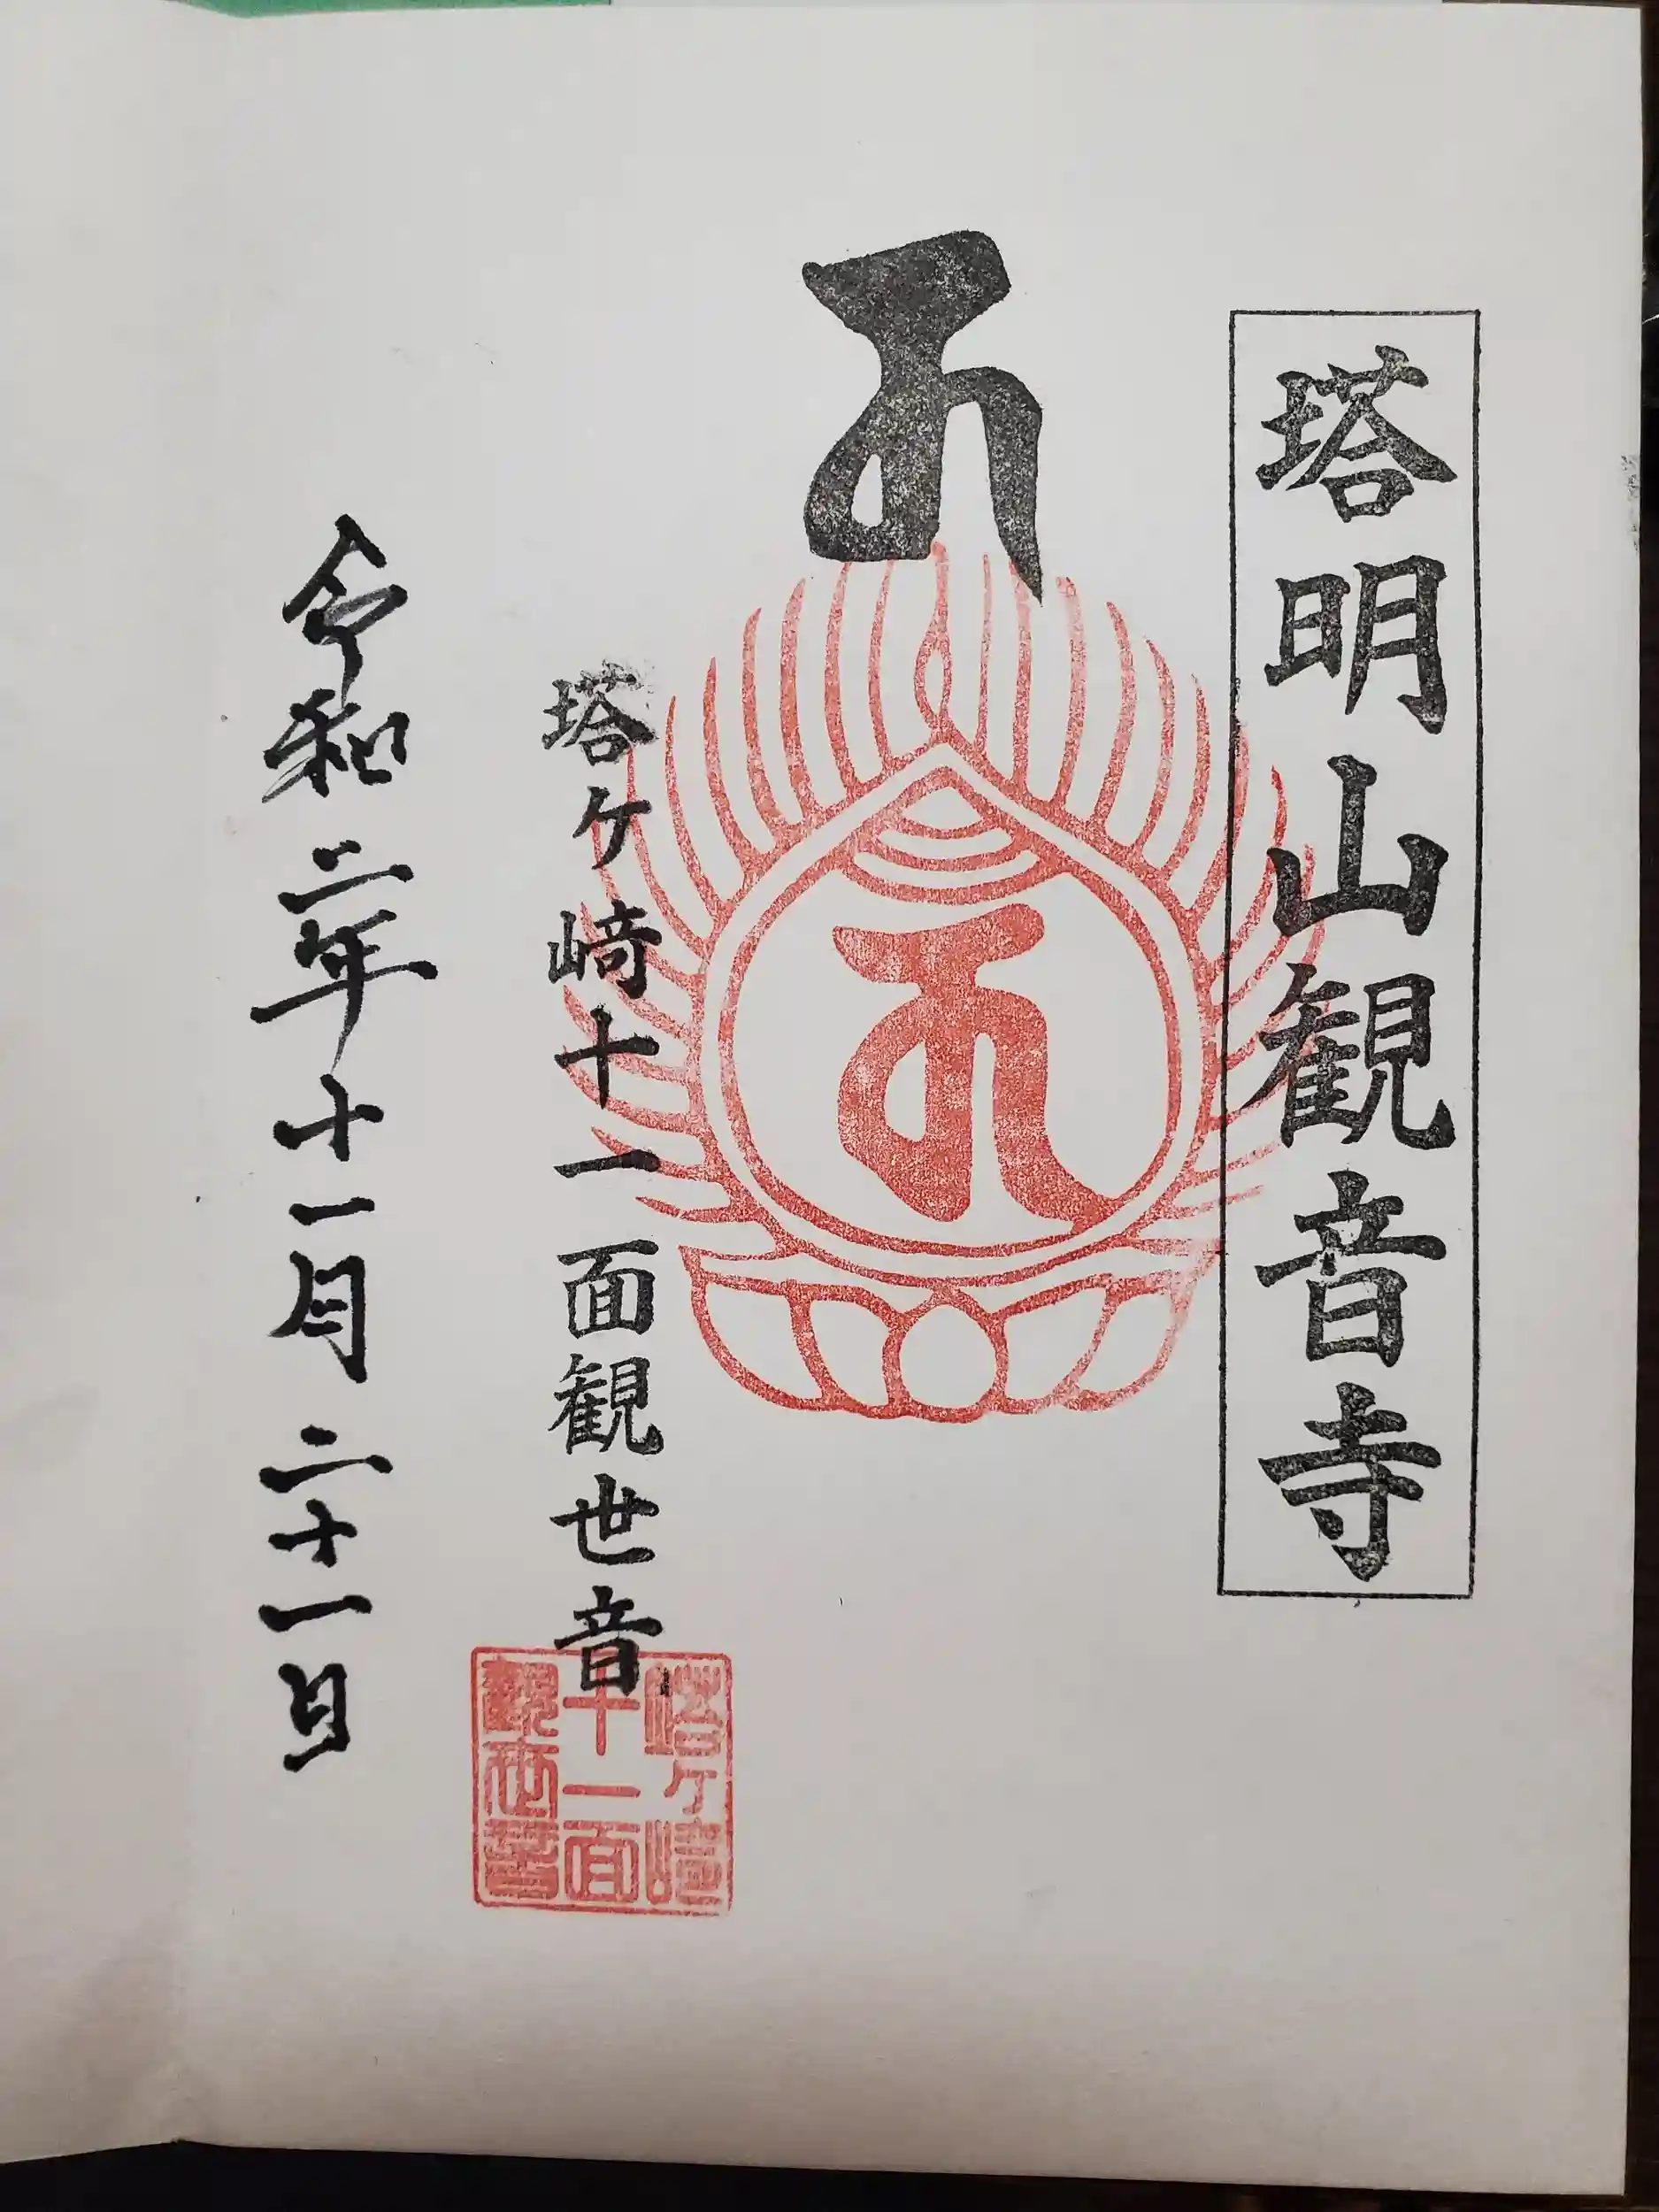 塔明山観音寺
塔ヶ﨑十一面観世音
塔ヶ﨑
十一面
観世音
令和二年十一月二十一日